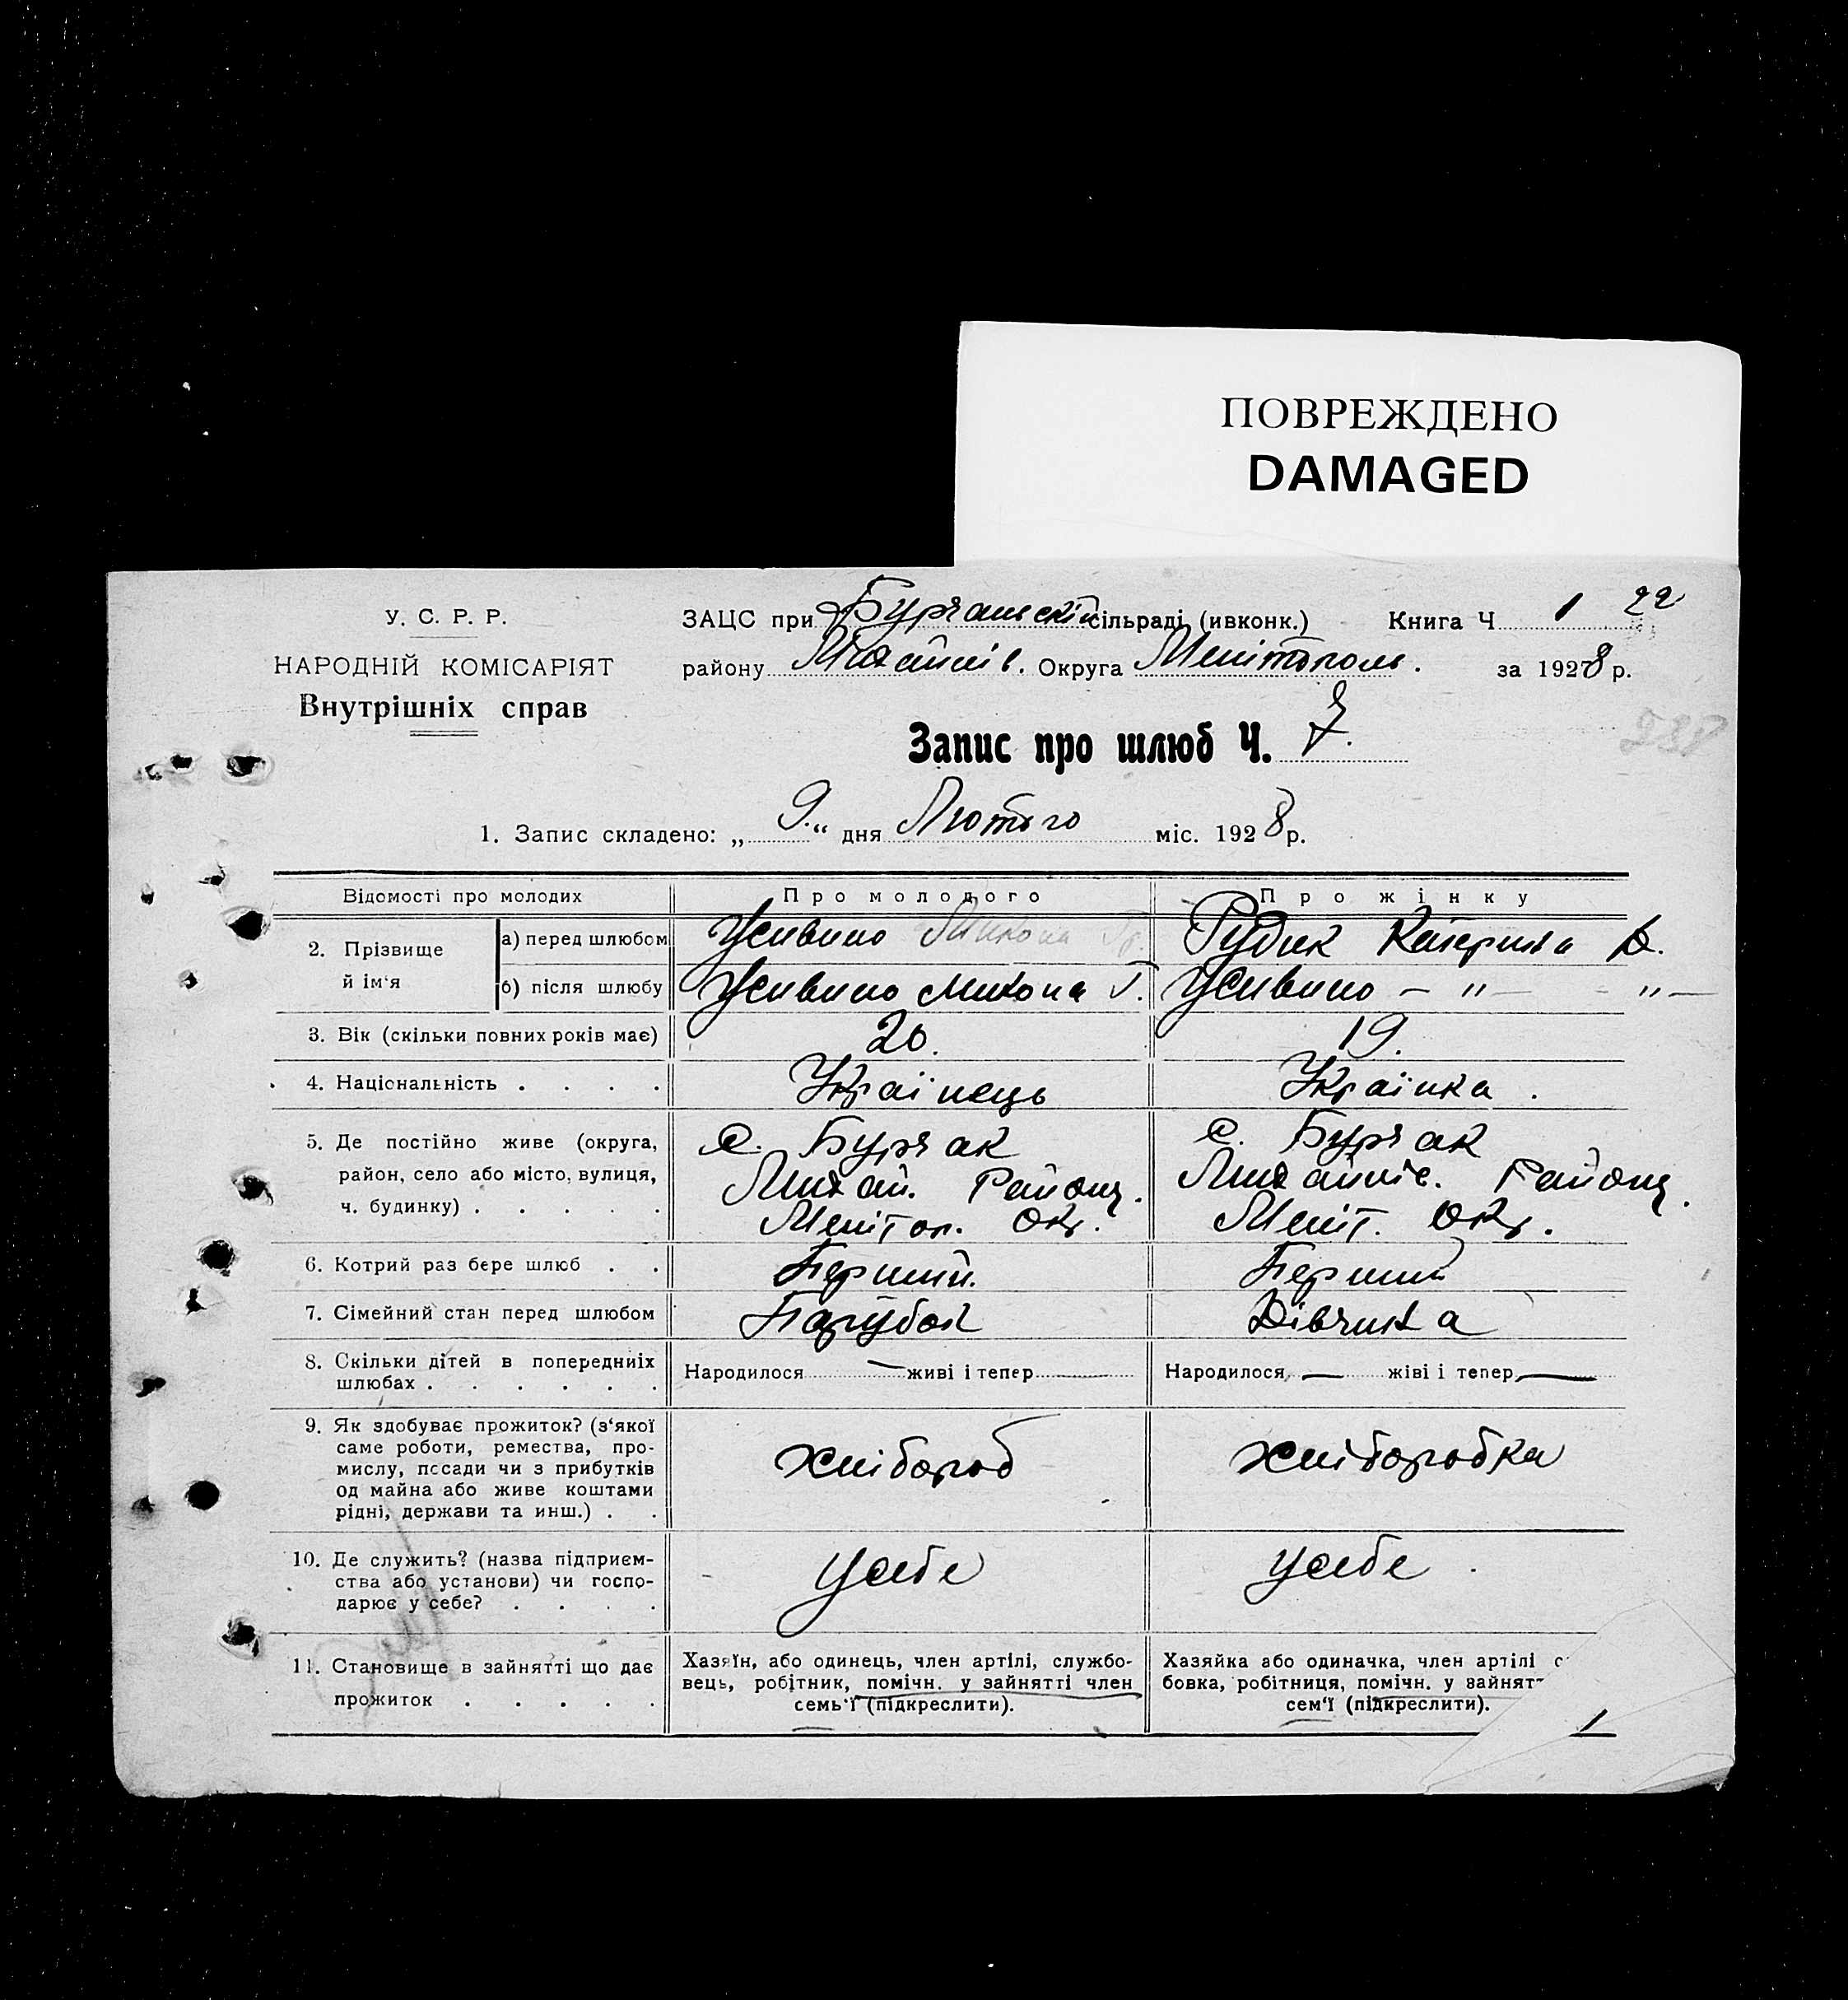 ПОВРЕЖДЕНО
DAMAGED
У. С. Р. Р.
НАРОДНІЙ КОМІСАРІЯТ
Внутрішніх справ
ЗАЦС при Бурчальскій сільраді (ивконк.) Книга Ч 1 22
району Михайлів. Округа Мелітополь. за 1928 р.
Запис про шлюб Ч. 7.
1. Запис складено: „ 9. “ дня Лютого міс. 1928 р.
Відомості про молодих
Про молодого
Про жінку
2. Прізвище й ім'я
а) перед шлюбом
Микола Гр.
Рудик Катерина
б) після шлюбу
Микола Г.
— „ — - „ —
3. Вік (скільки повних років має)
20.
19.
4. Національність . . . .
Українець
Українка .
5. Де постійно живе (округа,
район, село або місто, вулиця,
ч. будинку) . . . . .
с. Бурчак
Михай. Району.
Мелітоп. Окр.
с. Бурчак
Михайлів. Району.
Меліт. Окр.
6. Котрий раз бере шлюб . .
Перший.
Перший
7. Сімейний стан перед шлюбом
Парубок
Дівчина
8. Скільки дітей в попередниіх
шлюбах . . . . . .
Народилося — живі і тепер
Народилося — жіві і тепер —
9. Як здобуває прожиток? (з‘якої
саме роботи, ремества, про-
мислу, посади чи з прибутків
од майна або живе коштами
рідні, держави та инш.) . .
хлібороб
хліборобка
10. Де служить? (назва підприєм-
ства або установи) чи госпо-
дарює у себе? . . . .
усебе
усебе .
11. Становище в зайнятті що дає
прожиток . . . . .
Хазяїн, або одинець, член артілі, службо-
вець, робітник, помічн. у зайнятті член
семь‘ї (підкреслити).
Хазяйка або одиначка, член артілі с
бовка, робітниця, помічн. у зайнят
сем‘ї (підкреслити).